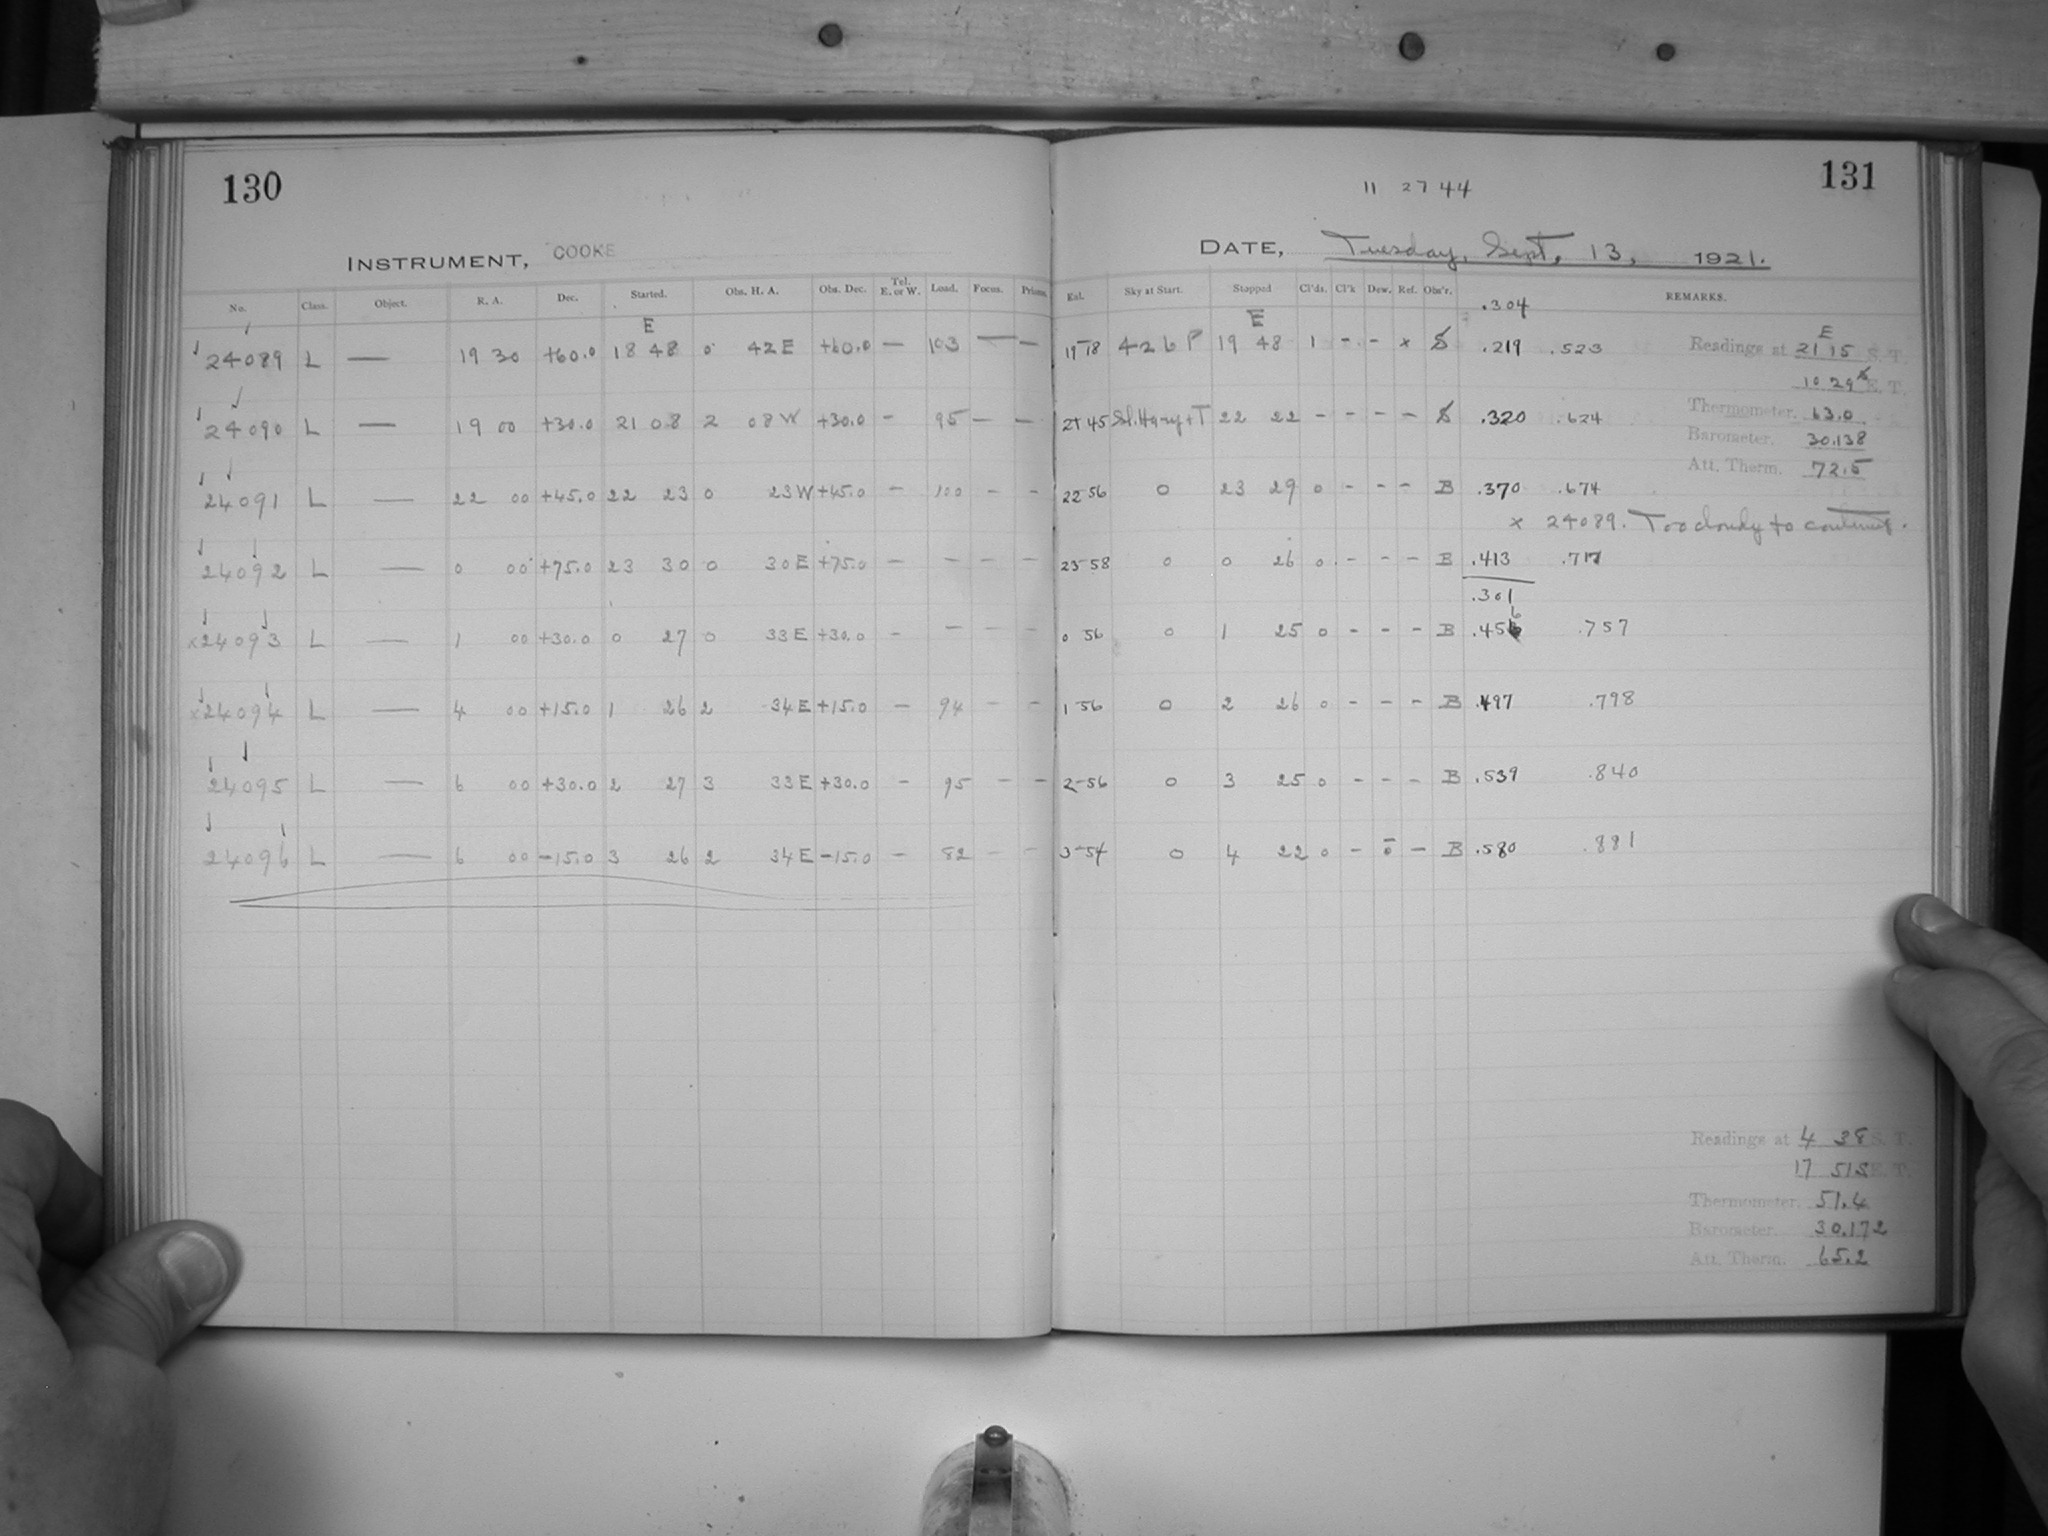 130
INSTRUMENT, COOKE
No. Class. Object. R. A. Dec. Started. Obs. H. A. Obs. Dec. Tel. E. or W. Load. Focus. Prisms.
E
24089 L — 19 30 +60.0 18 48 0 42 E +60.0 — 103 — —
24090 L — 19 00 +30.0 21 08 2 08 W +30.0 - 95 — —
24091 L — 22 00 +45.0 22 23 0 23 W +45.0 - 100 - -
24092 L — 0 00 +75.0 23 30 0 30 E +75.0 - - - -
x24093 L — 1 00 +30.0 0 27 0 33 E +30.0 - - - -
x24094 L — 4 00 +15.0 1 26 2 34 E +15.0 - 94 - -
24095 L — 6 00 +30.0 2 27 3 33 E +30.0 - 95 - -
24096 L — 6 00 -15.0 3 26 2 34 E -15.0 - 82 - -
131
11 27 44
DATE, Tuesday, Sept, 13, 1921.
Sky at Start. Stopped Cl'ds. Cl'k Dew. Ref. Obs'r. .304 REMARKS.
E
19 18 426 P 19 48 1 - - x S .219 .523
21 45 Sl. Hazy + T 22 22 - - - - S .320 .624
22 56 0 23 29 0 - - - B .370 .674
x 24089. Too cloudy to continue.
23 58 0 0 26 0 - - - B .413 .717
.301
0 56 0 1 25 0 - - - B .456 .757
1 56 0 2 26 0 - - - B .497 .798
2 56 0 3 25 0 - - - B .539 .840
3 54 0 4 22 0 - - B .580 .881
E
Readings at 21 15 S. T.
10 29 E. T.
Thermometer. 63.0
Barometer. 30.138
Att. Therm. 72.5
Readings at 4 38 S. T.
17 51 E. T.
Thermometer. 51.4
Barometer. 30.172
Att. Therm. 65.2